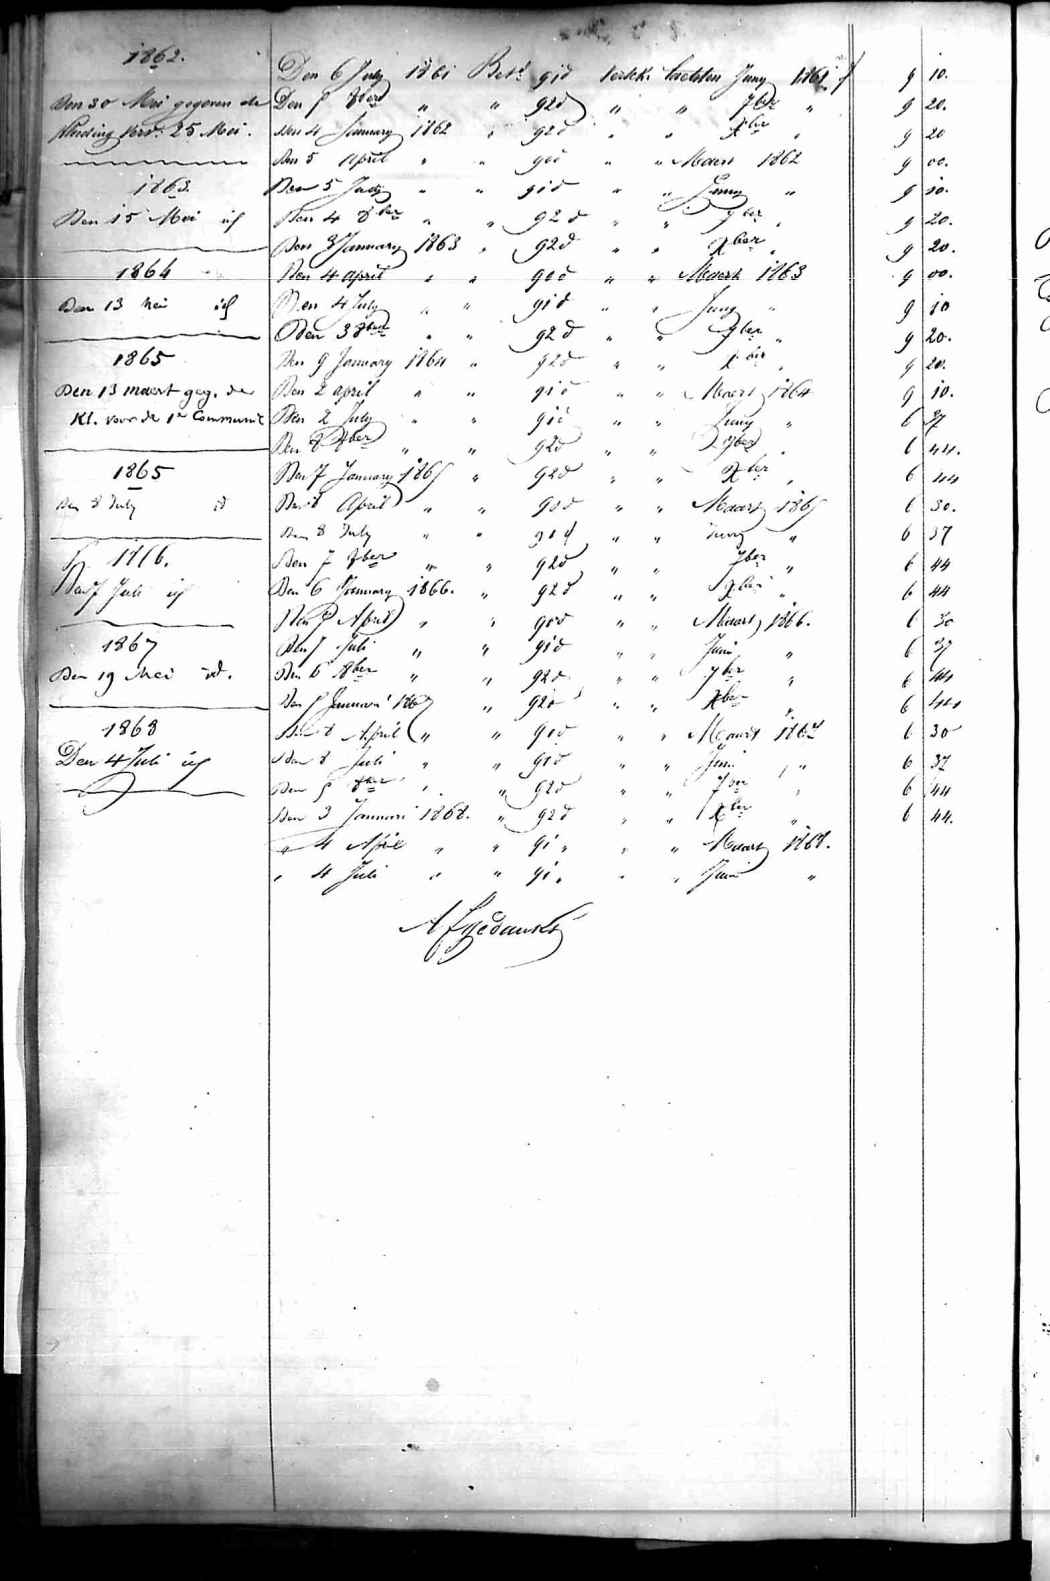 1862.
Den 30 Mei gegeven de
kleeding verv. 25 Mei.
1863.
Den 15 Mei id
1864
Den 13 Mei id
1865
Den 13 maert geg. de
kl. voor de 1e Communie
1865
Den 8 July id
1866.
Den 7 Juli id
1867
Den 19 Mei id.
1868
Den 4 Juli id
Den 6 July 1861 Bet. 91 d verstrekte Juny 1861 f 9 10.
Den 5 8ber " " 92 d " " 7ber " 9 20.
Den 4 January 1862 " 92 d " " Xber " 9 20
Den 5 April " " 90 d " " Maert 1862 9 00.
Den 5 July " " 91 d " " Juny " 9 10.
Den 4 8ber " " 92 d " " 7ber " 9 20.
Den 3 January 1863 " 92 d " " Xber " 9 20.
Den 4 april " " 90 d " " Maert 1863 9 00.
Den 4 July " " 91 d " " Juny " 9 10
Den 3 8ber " " 92 d " " 7ber " 9 20.
Den 9 January 1864 " 92 d " " Xber " 9 20.
Den 2 april " " 91 d " " Maert 1864 9 10.
Den 2 July " " 91 d " " Juny " 6 37
Den 8 8ber " " 92 d " " 7ber " 6 44.
Den 7 January 1865 " 92 d " " Xber " 6 44
Den 8 April " " 90 d " " Maart 1865 6 30.
Den 8 July " " 91 d " " Juny " 6 37
Den 7 8ber " " 92 d " " 7ber " 6 44
Den 6 January 1866. " 92 d " " Xber " 6 44
Den 7 April " " 90 d " " Maart 1866. 6 30
Den 7 Juli " " 91 d " " Juni " 6 37
Den 6 8ber " " 92 d " " 7ber " 6 44
Den 5 Januari 1867 " 92 d " " Xber " 6 44
Den 6 April " " 90 d " " Maart 1867 6 30
Den 6 Juli " " 91 d " " Juni " 6 37
Den 5 8ber " " 92 d " " 7ber " 6 44
Den 3 Januari 1868. " 92 d " " Xber " 6 44.
" 4 April " " 91 " " " Maart 1868.
" 4 Juli " " 91 " " " Juni "